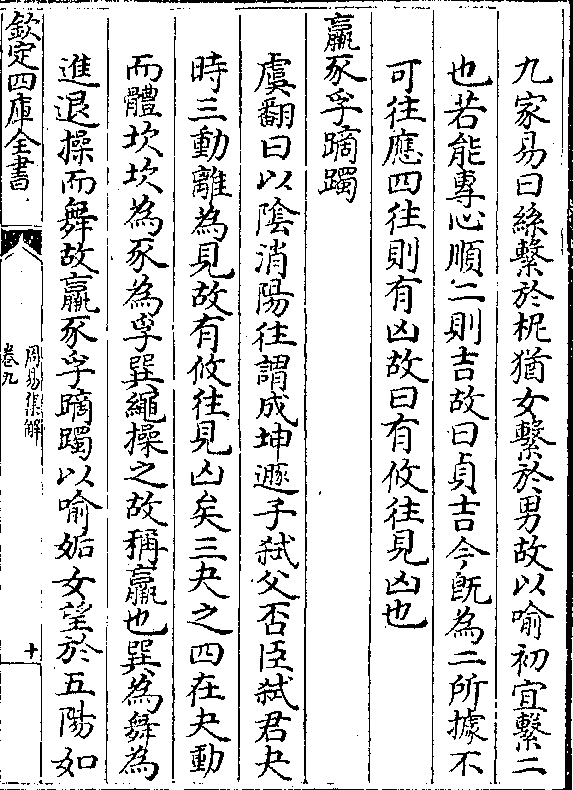 九家易曰絲繫於柅猶女繫於男故以喻初宜繫二
也若能專心順二則吉故曰貞吉今旣為二所據不
可往應四往則有凶故曰有攸往見凶也
羸豕孚蹢躅
虞翻曰以陰消陽往謂成坤遯子弑父否臣弑君夬
時三動離為見故有攸往見凶矣三夬之四在夬動
而體坎坎為豕為孚巽繩操之故稱羸也巽為舞為
進退操而舞故羸豕孚蹢躅以喻姤女望於五陽如
欽定四庫全書
周易集解
卷九
十